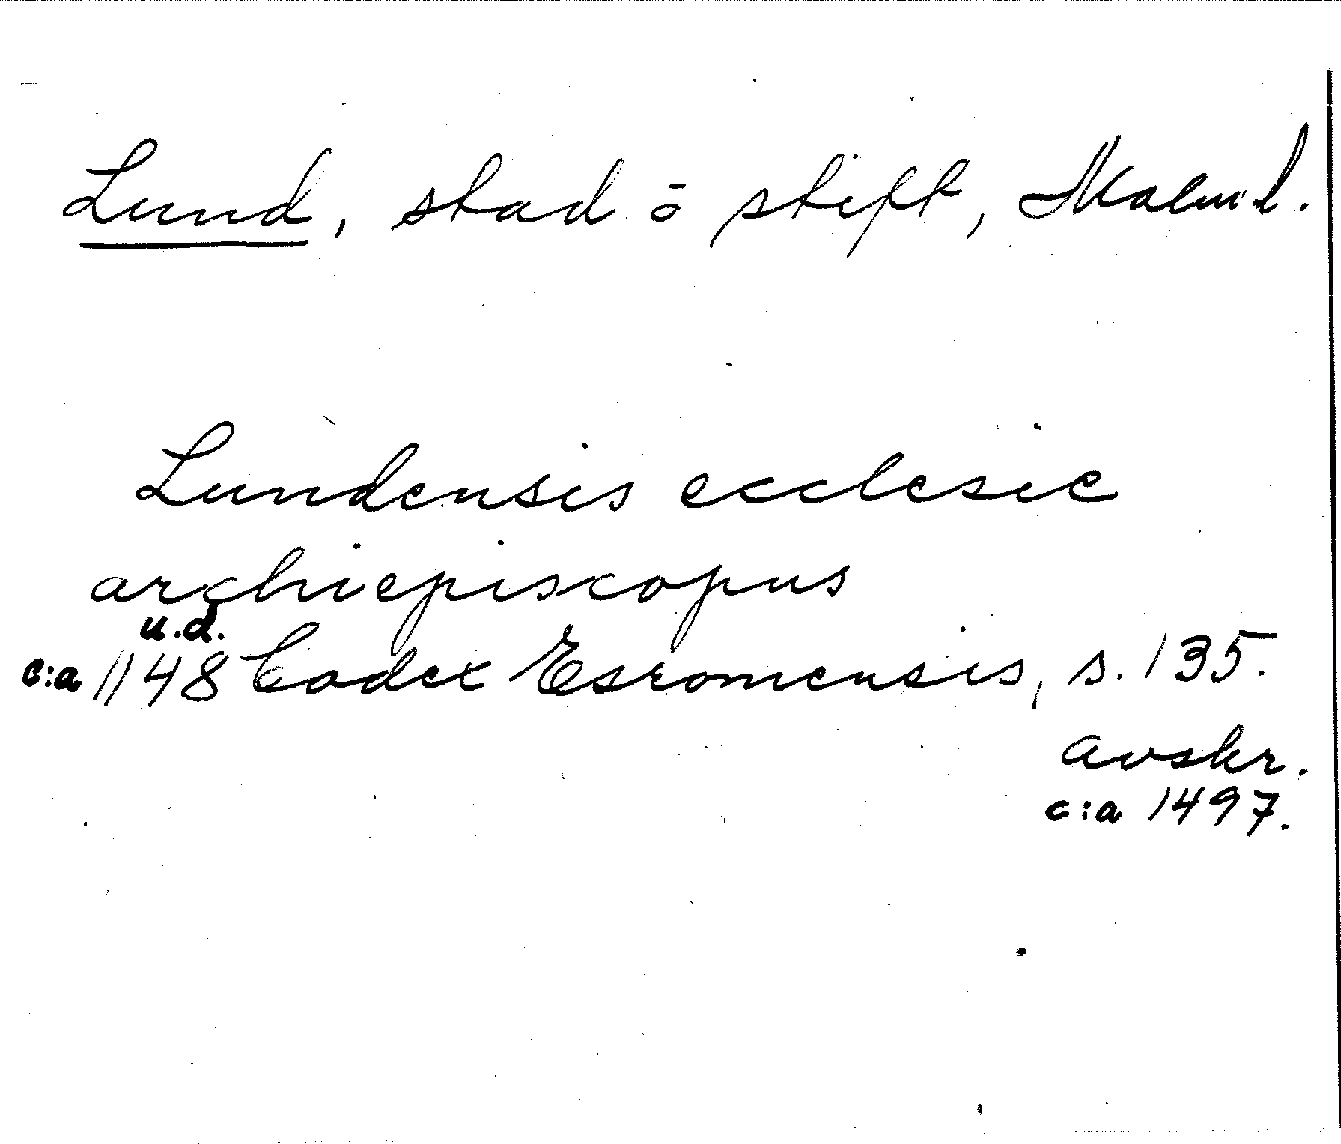 Lund, stad o stift, Malm.l.
Lundensis ecclesie
archiepiscopus
u.d.
c:a 1148 Codex Esromensis, s. 135.
Avskr.
c:a 1497.